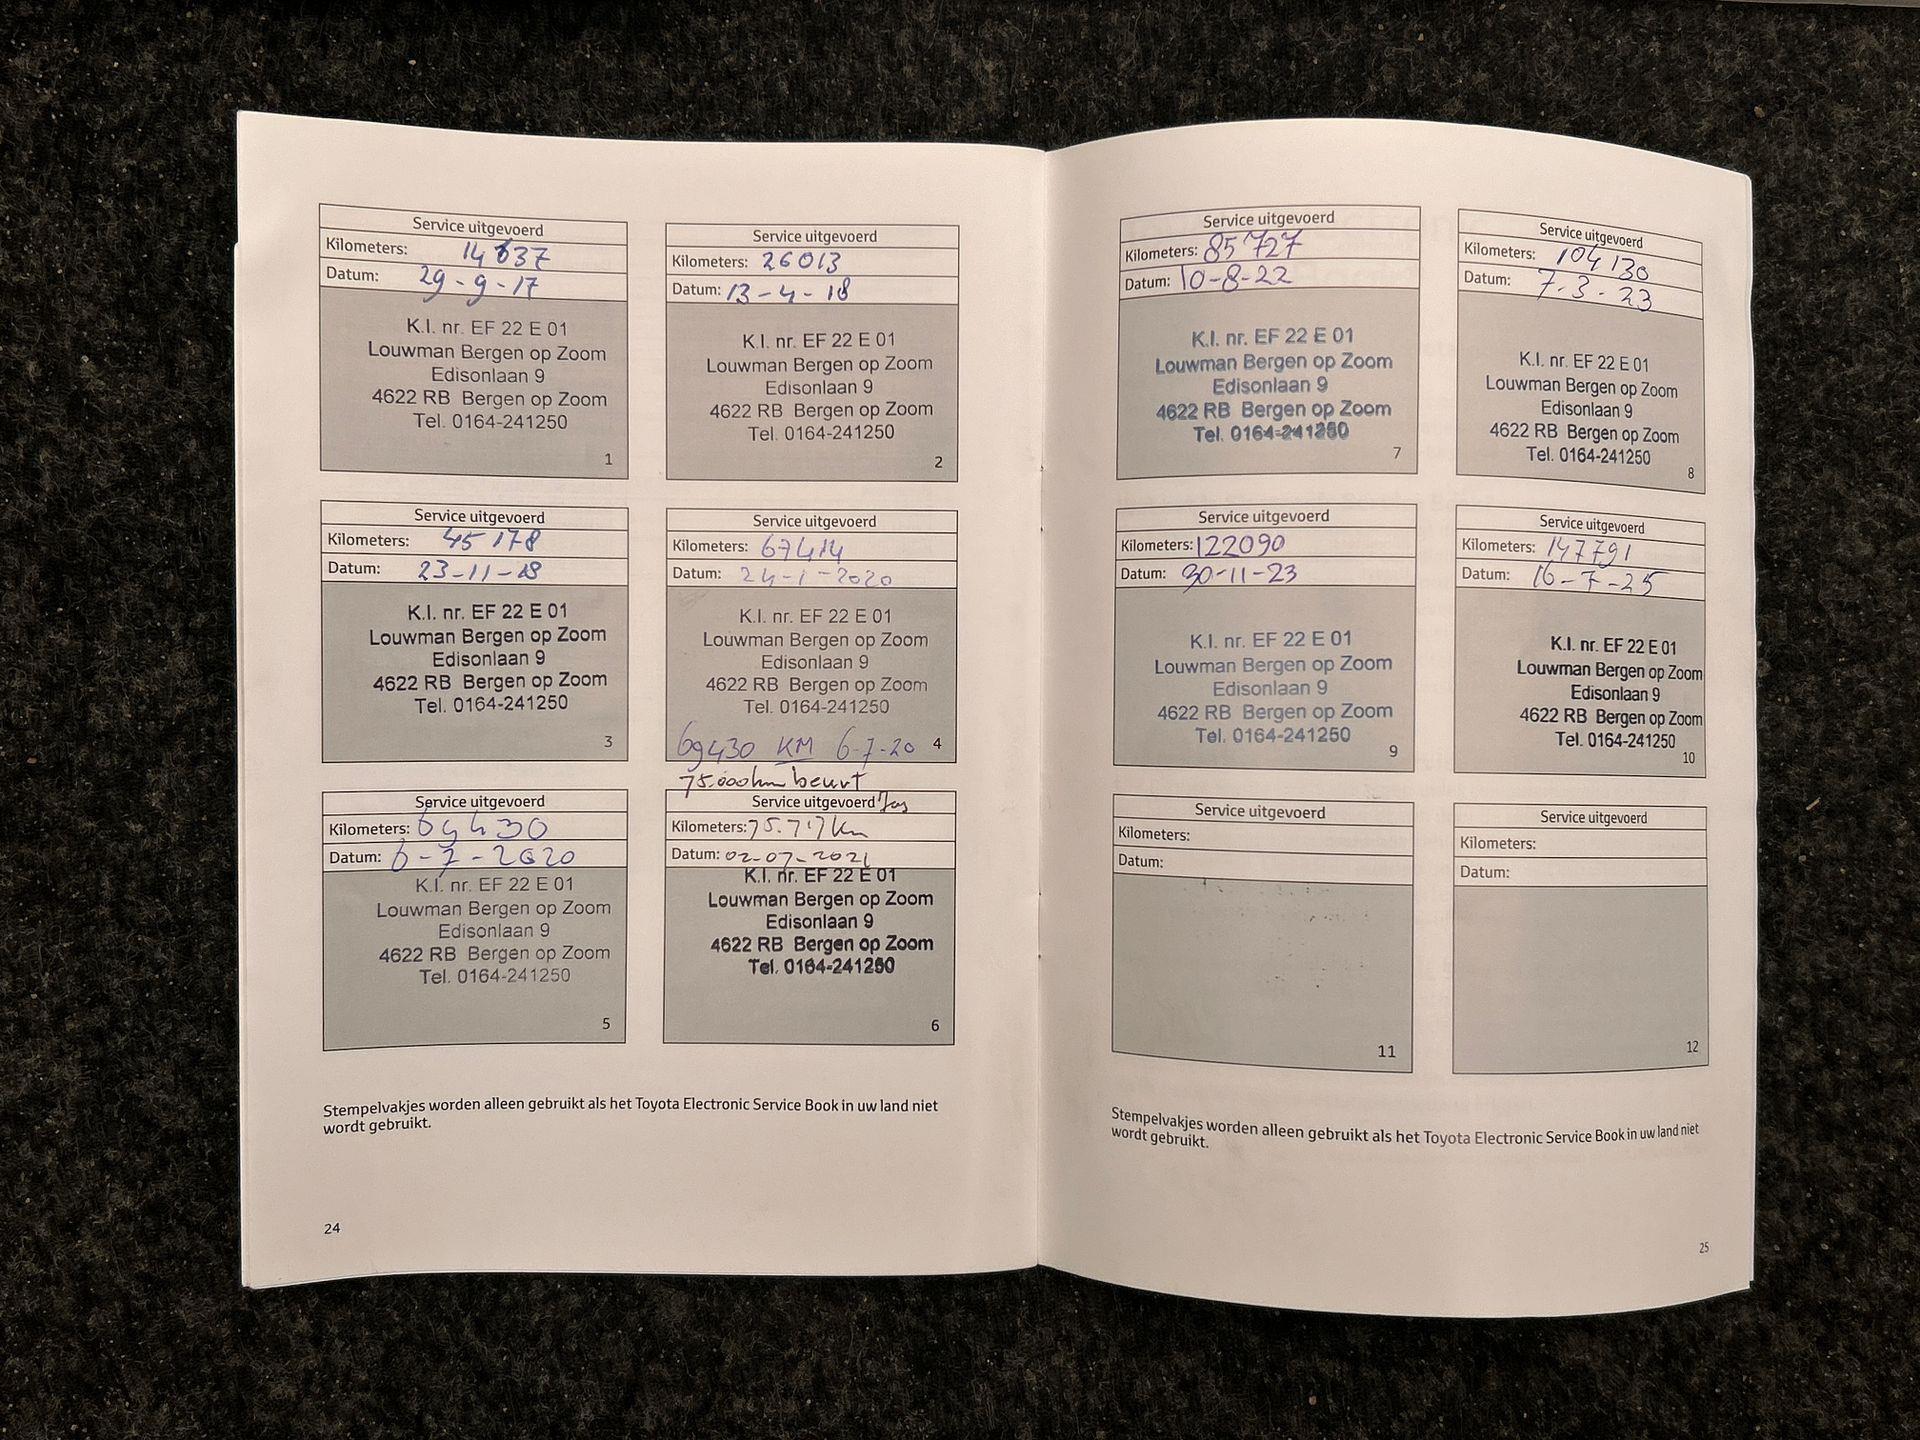 Service uitgevoerd
Kilometers: 14637
Datum: 29-9-17
K.I. nr. EF 22 E 01
Louwman Bergen op Zoom
Edisonlaan 9
4622 RB Bergen op Zoom
Tel. 0164-241250
1
Service uitgevoerd
Kilometers: 26013
Datum: 13-4-18
K.I. nr. EF 22 E 01
Louwman Bergen op Zoom
Edisonlaan 9
4622 RB Bergen op Zoom
Tel. 0164-241250
2
Service uitgevoerd
Kilometers: 45178
Datum: 23-11-18
K.I. nr. EF 22 E 01
Louwman Bergen op Zoom
Edisonlaan 9
4622 RB Bergen op Zoom
Tel. 0164-241250
3
Service uitgevoerd
Kilometers: 67414
Datum: 24-1-2020
K.I. nr. EF 22 E 01
Louwman Bergen op Zoom
Edisonlaan 9
4622 RB Bergen op Zoom
Tel. 0164-241250
69430 KM 6-7-20 4
Service uitgevoerd
Kilometers: 69430
Datum: 6-7-2020
K.I. nr. EF 22 E 01
Louwman Bergen op Zoom
Edisonlaan 9
4622 RB Bergen op Zoom
Tel. 0164-241250
5
75.000km beurt
Service uitgevoerd
Kilometers: 75.717 km
Datum: 02-07-2021
K.I. nr. EF 22 E 01
Louwman Bergen op Zoom
Edisonlaan 9
4622 RB Bergen op Zoom
Tel. 0164-241250
6
Stempelvakjes worden alleen gebruikt als het Toyota Electronic Service Book in uw land niet
wordt gebruikt.
24
Service uitgevoerd
Kilometers: 85727
Datum: 10-8-22
K.I. nr. EF 22 E 01
Louwman Bergen op Zoom
Edisonlaan 9
4622 RB Bergen op Zoom
Tel. 0164-241250
7
Service uitgevoerd
Kilometers: 104130
Datum: 7-3-23
K.I. nr. EF 22 E 01
Louwman Bergen op Zoom
Edisonlaan 9
4622 RB Bergen op Zoom
Tel. 0164-241250
8
Service uitgevoerd
Kilometers: 122090
Datum: 30-11-23
K.I. nr. EF 22 E 01
Louwman Bergen op Zoom
Edisonlaan 9
4622 RB Bergen op Zoom
Tel. 0164-241250
9
Service uitgevoerd
Kilometers: 147791
Datum: 16-7-25
K.I. nr. EF 22 E 01
Louwman Bergen op Zoom
Edisonlaan 9
4622 RB Bergen op Zoom
Tel. 0164-241250
10
Service uitgevoerd
Kilometers:
Datum:
11
Service uitgevoerd
Kilometers:
Datum:
12
Stempelvakjes worden alleen gebruikt als het Toyota Electronic Service Book in uw land niet
wordt gebruikt.
25